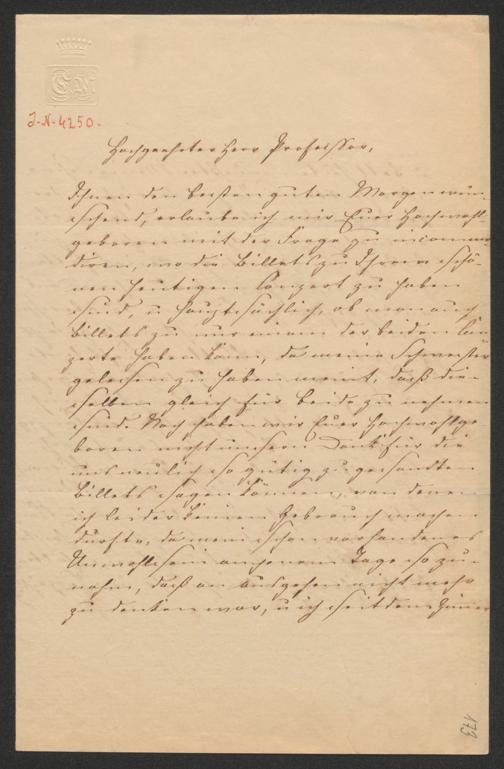 J.-N.-4250.
Hochgeehrter Herr Professor,
Ihnen den besten guten Morgen wün-
schend, erlaube ich mir Euer Hochwohl-
geboren mit der Frage zu incommo-
diren, wo die Billets zu Ihrem schö-
nen heutigen Conzert zu haben
sind, u. hauptsächlich, ob man auch
Billets zu nur einem der beiden Con-
zerte haben kann, da meine Schwester
gelesen zu haben meint, daß die-
selben gleich für beide zu nehmen
sind. Noch haben wir Euer Hochwohlge-
boren nicht unsern Dank für die
uns neulich so gütig zugesandten
Billets sagen können, von denen
ich leider keinen Gebrauch machen
durfte, da mein schon vorhandenes
Unwohlsein an jenem Tage so zu-
nahm, daß an Ausgehen nicht mehr
zu denken war, u. ich seitdem Zimmer
173